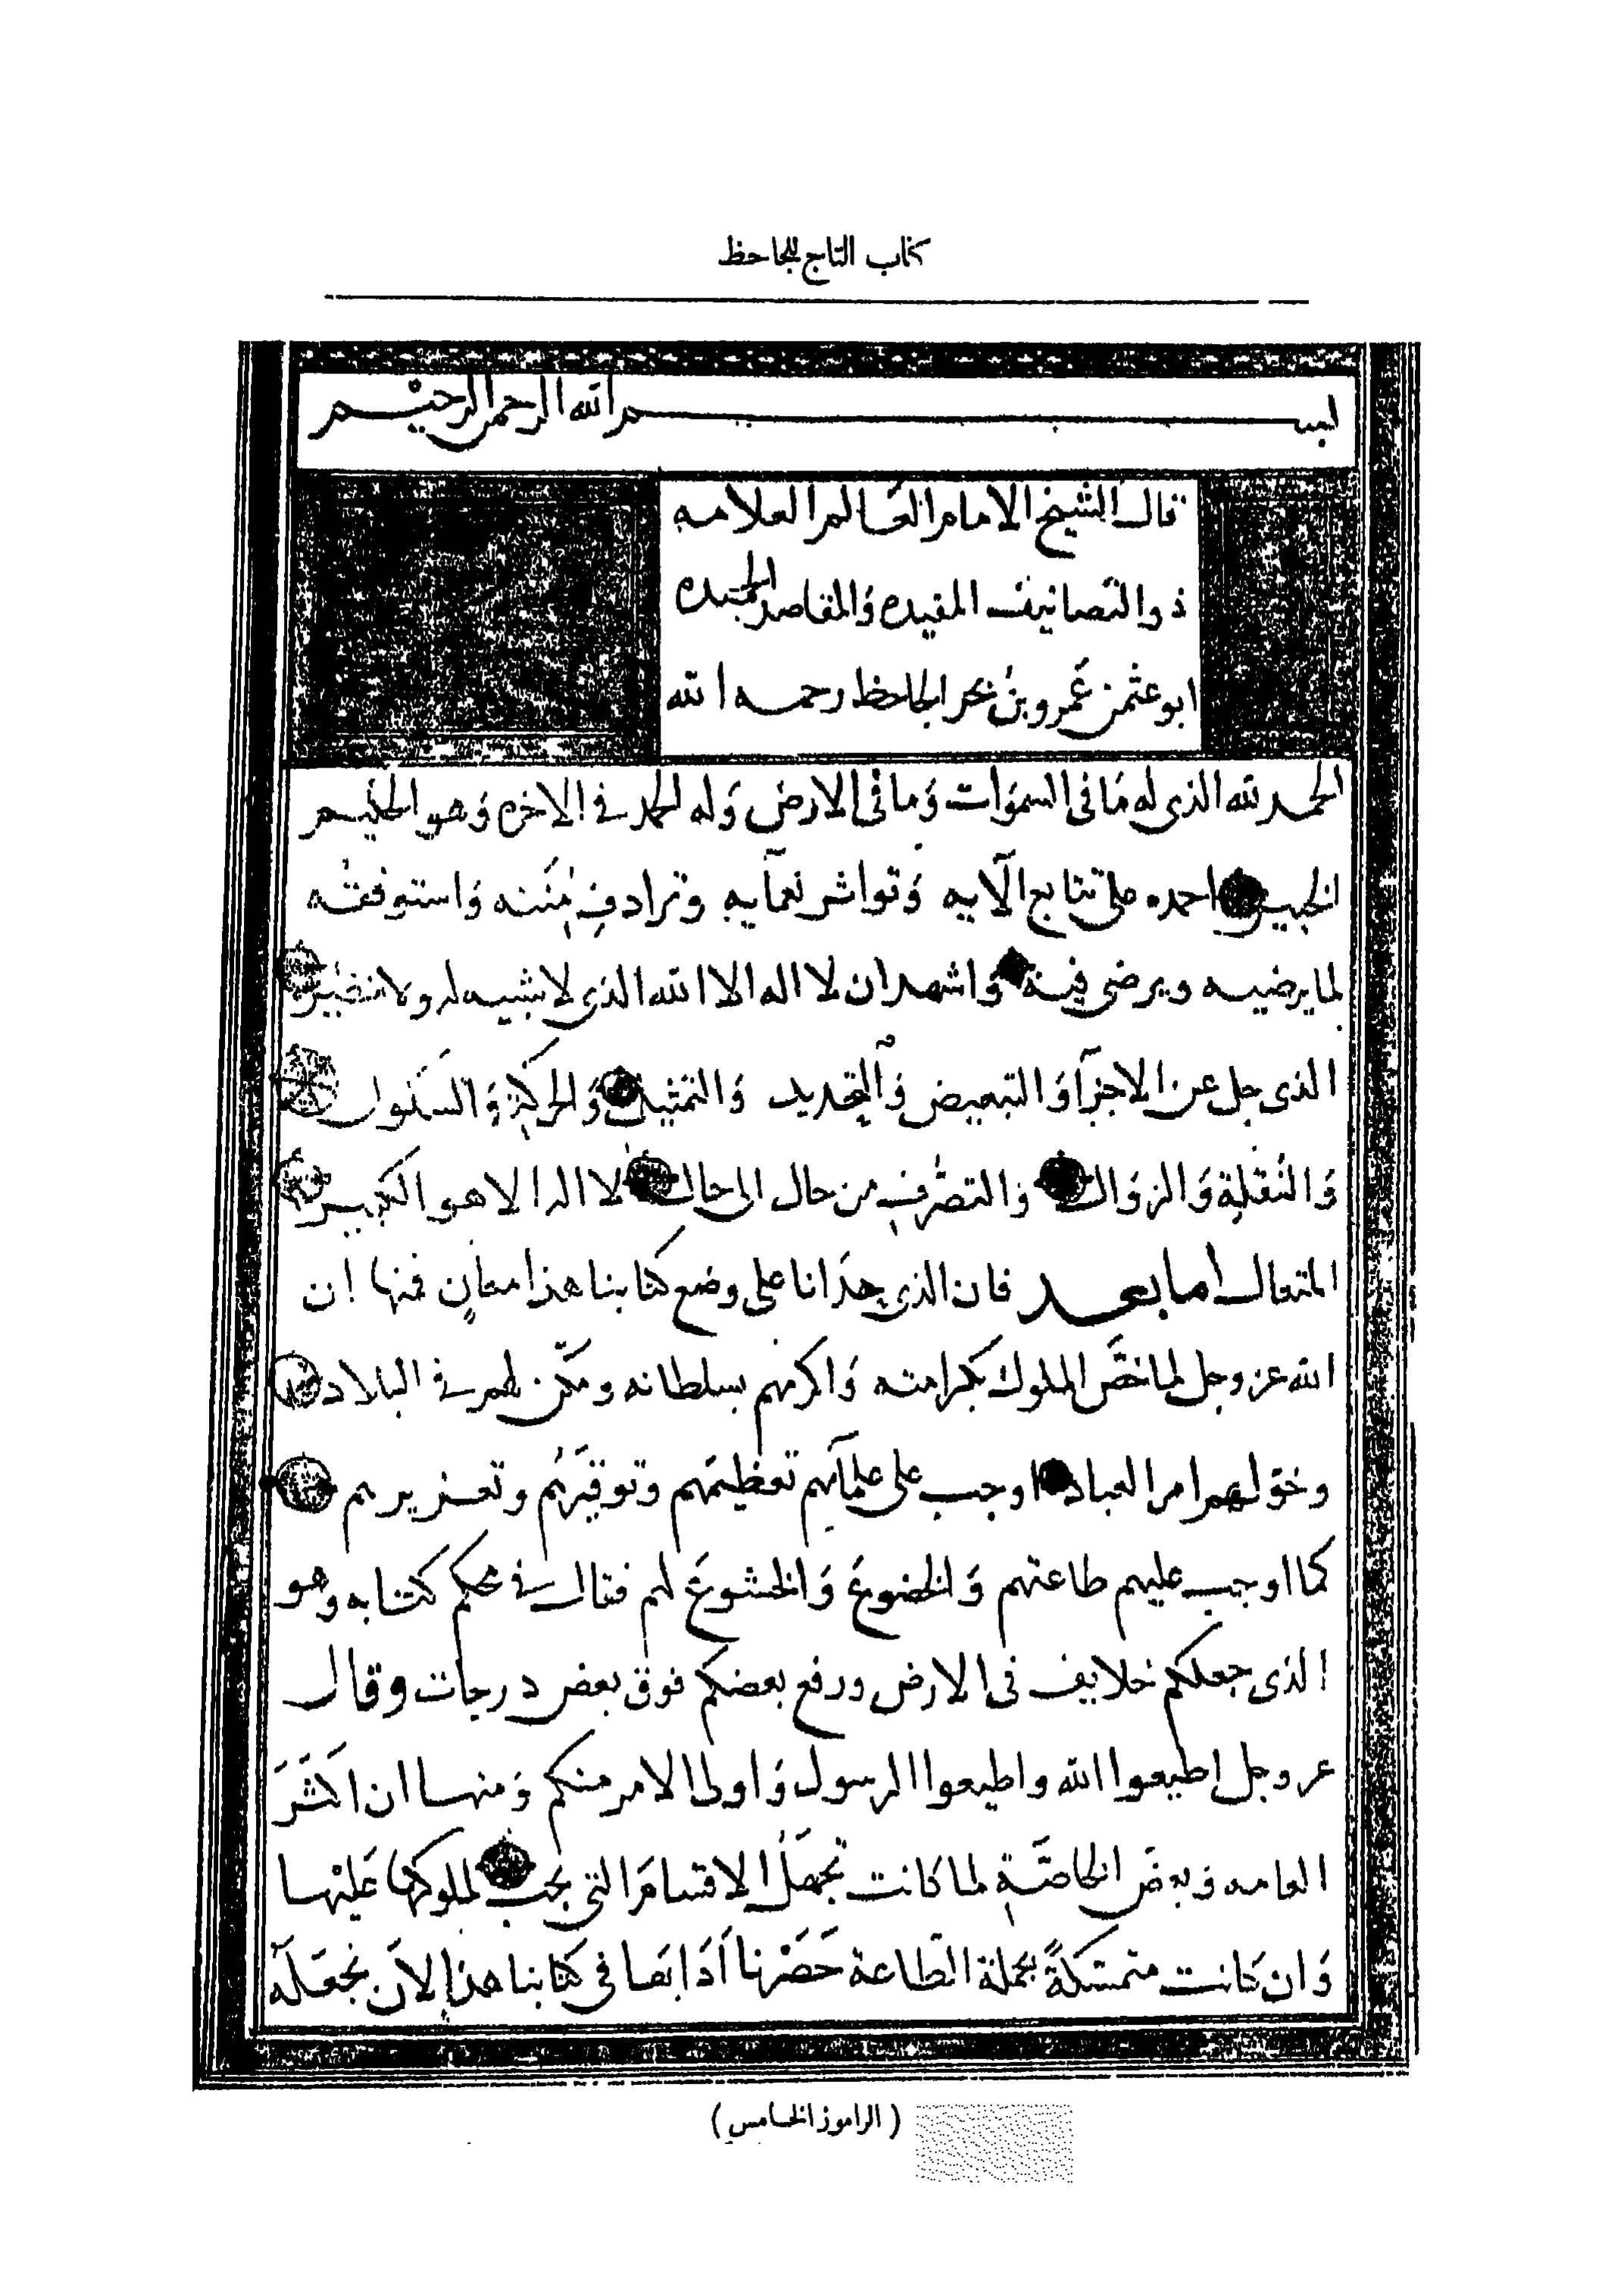 كتاب التاج للجاحظ
بسم الله الرحمن الرحيم
قال الشيخ الامام العالم العلامه
ذو التصانيف المفيده وَالمقاصد الحميده
ابو عثمن عَمرو بن بحر الجاحظ رحمه الله
الحمد لله الذى له مَا فى السموَات وَما فى الارض وَله الحمد فى الاخره وَهو الحكيم
الخبير احمده على تتابع آلايه وَتواتر نعمآيه وترادفِ مِنَنه وَاستوفقه
لما يرضيه ويرضى فيه وَاشهد ان لا اله الا الله الذى لا شبيه له ولا نظير
الذى جل عن الاجزآ وَالتبعيض وَالتحديد وَالتمثيل وَالحركةِ وَالسكون
وَالنُقلةِ وَالزوَال وَالتصرُّفِ من حال الى حال لا اله الا هو الكبير
المتعال اما بعد فان الذى حدَانا على وضع كتابنا هذا معانٍ فمنها ان
الله عز وجل لما خصَّ الملوك بكرامته وَاكرمهم بسلطانه ومكّن لهم فى البلاد
وخوّلهم امر العباد اوجب على علمآيهم تعظيمَهم وتوقيرَهُم وتعزيرهم
كما اوجب عليهم طاعتهم وَالخضوعَ وَالخشوعَ لهم فقال فى محكم كتابه وهو
الذى جعلكم خلايف فى الارض ورفع بعضكم فوق بعض درجات وقال
عز وجل اطيعوا الله واطيعوا الرسول وَاولى الامر منكم وَمنها ان اكثَرَ
العامه وَبعضَ الخاصَّةِ لما كانت تجهَلُ الاقسامَ التى تجب لملوكها عَليْها
وَان كانت متمسّكةً بجملة الطّاعة حَصَرْنا آدَابَها فى كتابنا هذا لِاَن نجعَلَه
(الراموز الخامس)